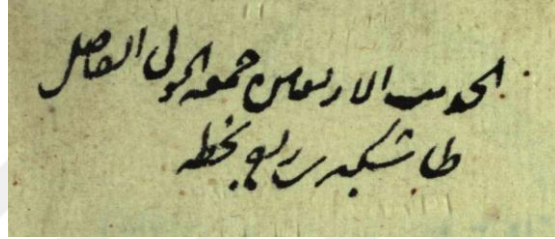 الحديث الاربعين جمعه المولى الفاضل
طاشكبري بخطه